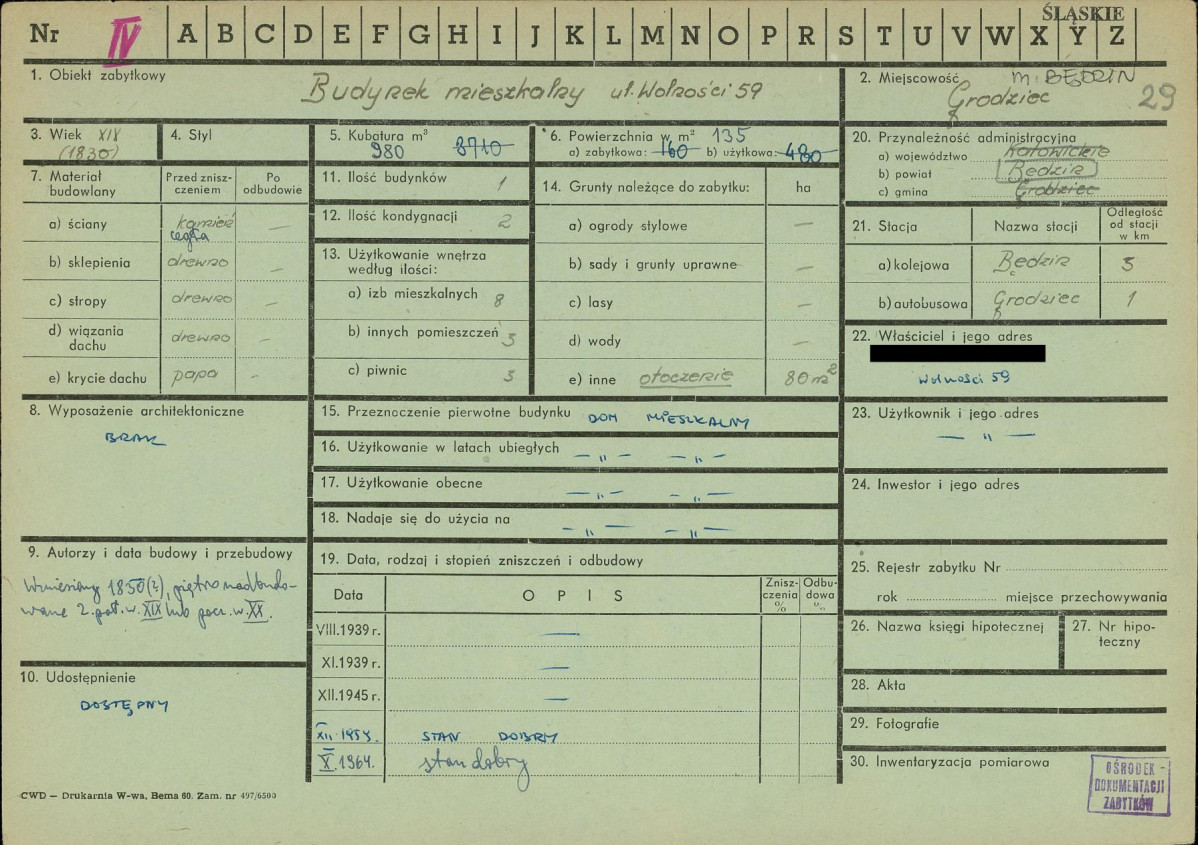 ŚLĄSKIE
Nr IV A B C D E F G H I J K L M N O P R S T U V W X Y Z
1. Obiekt zabytkowy
Budynek mieszkalny ul. Wolności 59
2. Miejscowość m. BĘDZIN
Grodziec 29
3. Wiek XIX
(1830)
4. Styl
5. Kubatura m³
980 8710
6. Powierzchnia w m² 135
a) zabytkowa: 160 b) użytkowa: 480
7. Materiał budowlany
Przed zniszczeniem
Po odbudowie
a) ściany kamień cegła —
b) sklepienia drewno —
c) stropy drewno —
d) wiązania dachu drewno —
e) krycie dachu papa -
8. Wyposażenie architektoniczne
BRAK
9. Autorzy i data budowy i przebudowy
Wzniesiony 1850(?), piętro nadbudo-
wane 2. poł. w. XIX lub pocz. w. XX.
10. Udostępnienie
DOSTĘPNY
11. Ilość budynków 1
12. Ilość kondygnacji 2
13. Użytkowanie wnętrza
według ilości:
a) izb mieszkalnych 8
b) innych pomieszczeń 3
c) piwnic 3
14. Grunty należące do zabytku: ha
a) ogrody stylowe —
b) sady i grunty uprawne —
c) lasy —
d) wody —
e) inne otoczenie 80 m²
15. Przeznoczenie pierwotne budynku DOM MIESZKALNY
16. Użytkowanie w latach ubiegłych — „ — — „ —
17. Użytkowanie obecne — „ — — „ —
18. Nadaje się do użycia na — „ — — „ —
19. Data, rodzaj i stopień zniszczeń i odbudowy
Data OPIS Zniszczenia % Odbudowa %
VIII.1939 r. —
XI.1939 r. —
XII.1945 r. —
XII. 1959. STAN DOBRY
X.1964. stan dobry
20. Przynależność administracyjna
a) województwo Katowickie
b) powiat Będzin
c) gmina Grodziec
21. Stacja Nazwa stacji Odległość od stacji w km
a) kolejowa Będzin 5
b) autobusowa Grodziec 1
22. Właściciel i jego adres
Wolności 59
23. Użytkownik i jego adres
— „ —
24. Inwestor i jego adres
25. Rejestr zabytku Nr
rok miejsce przechowywania
26. Nazwa księgi hipotecznej
27. Nr hipo-
teczny
28. Akta
29. Fotografie
30. Inwentaryzacja pomiarowa
OŚRODEK -
DOKUMENTACJI
ZABYTKÓW
CWD — Drukarnia W-wa, Bema 60. Zam. nr 497/6500